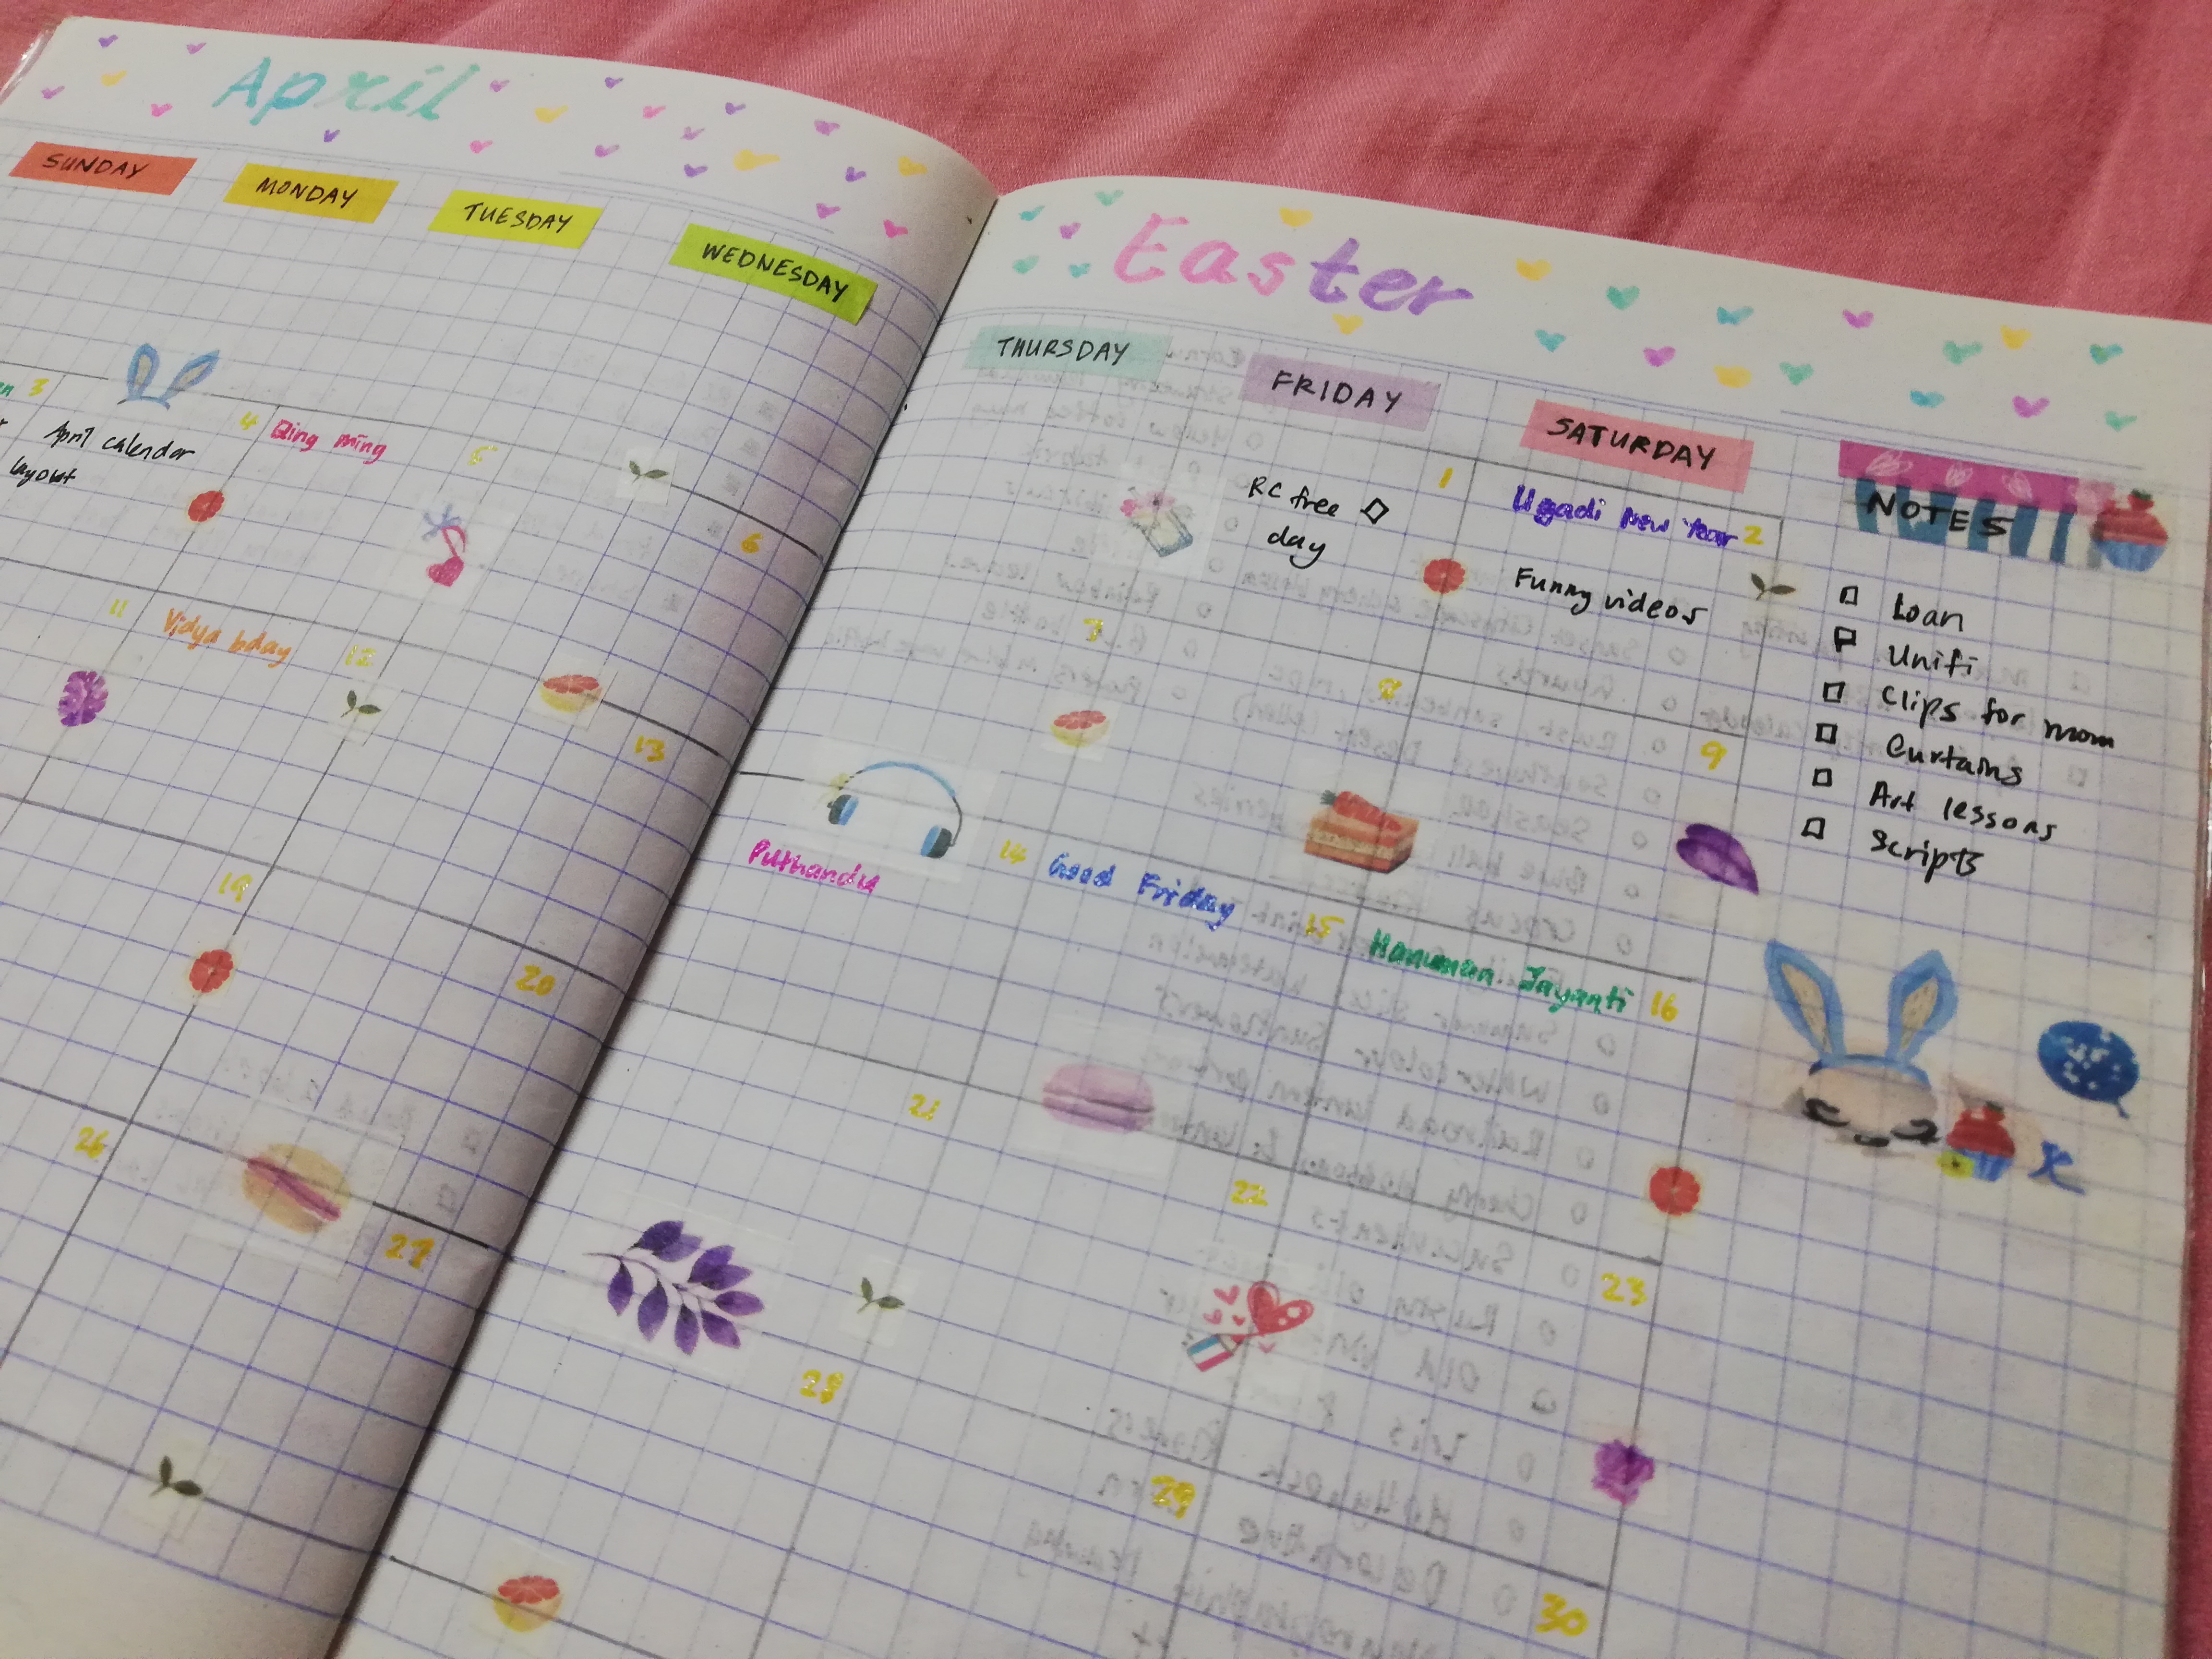 April
Easter
SUNDAY
MONDAY
TUESDAY
WEDNESDAY
THURSDAY
FRIDAY
SATURDAY
NOTES
3
April calendar
layout
4
Qing ming
5
6
7
RC free
day
1
Ugadi New Year 2
Funny videos
8
9
11
Vidya bday
12
13
Puthandu
14
Good Friday
15
Hanuman Jayanti
16
19
20
21
22
23
26
27
28
29
30
Loan
Unifi
Clips for mom
Curtains
Art lessons
Scripts